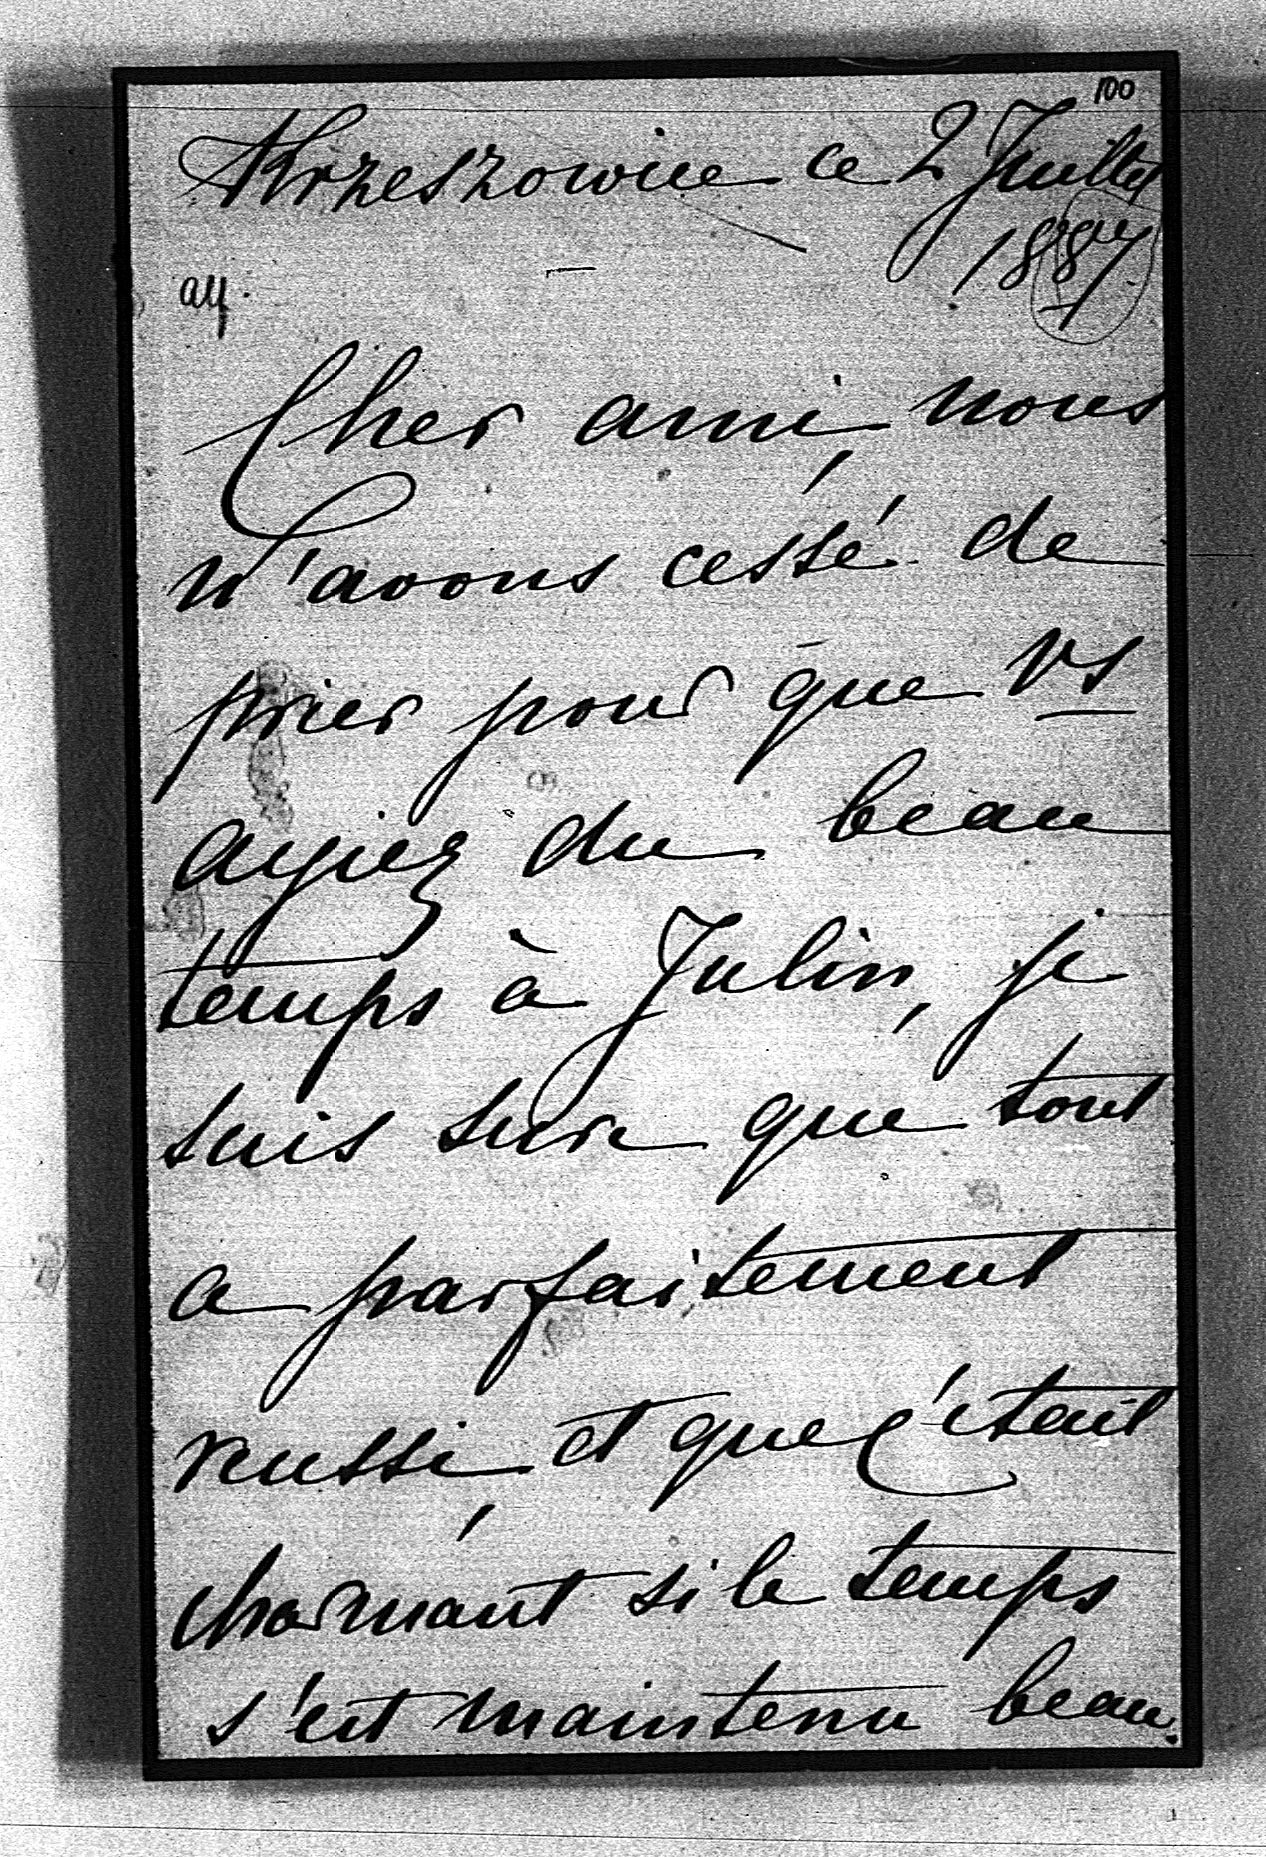 100
Krzeszowice ce 2 Juillet
1887.
Cher ami, nous
n'avons cessé de
prier pour que vs
ayiez du beau
temps à Julin, je
suis sure que tout
a parfaitement
reussi, et que c'était
charmant si le temps
s'est maintenu beau.